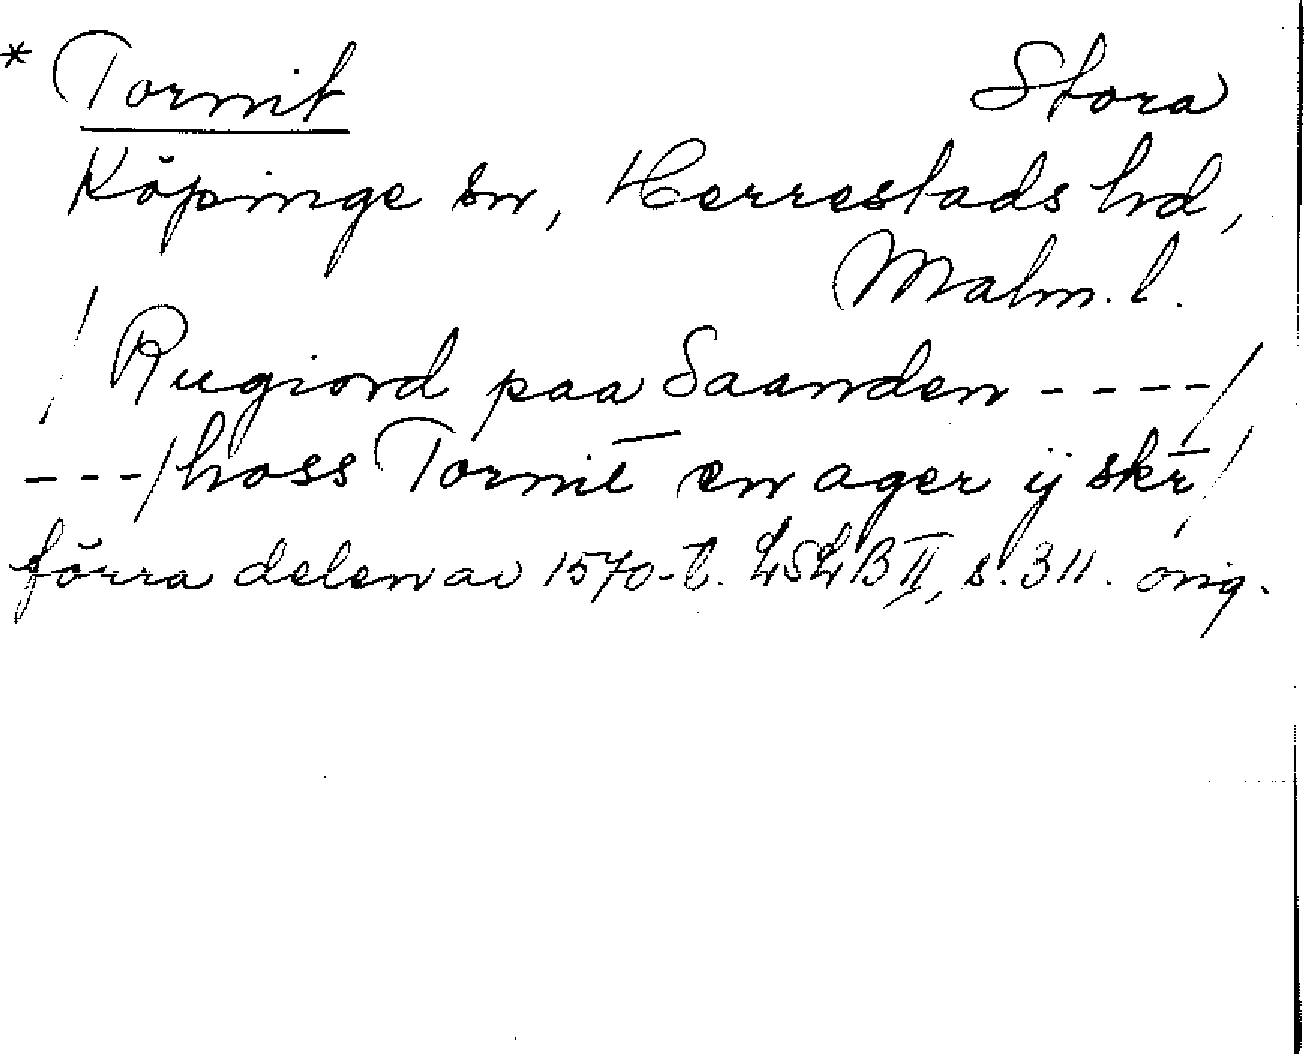 * Tormit Stora
Köpinge sn, Herrestads hd,
Malm. l.
/ Rugiord paa Saanden ----/
---/ hoss Tormit̅ en ager ij skr̅ /
förra delen av 1570-t. LSLB II, s. 311. orig.